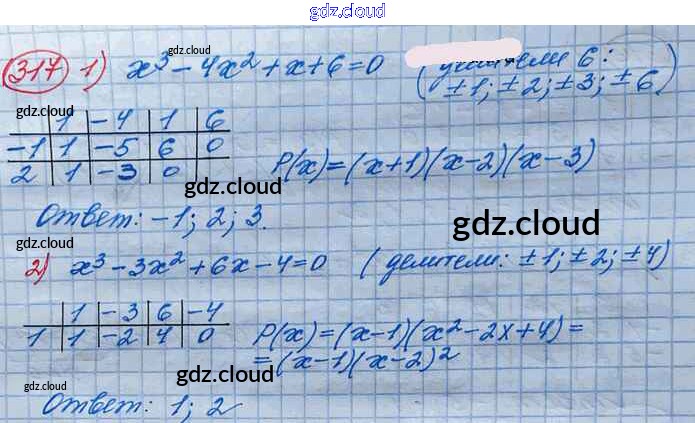 gdz.cloud
317 1) x³ - 4x² + x + 6 = 0 (делители 6:
± 1; ± 2; ± 3; ± 6)
gdz.cloud
gdz.cloud
1 | -4 | 1 | 6
-1 | 1 | -5 | 6 | 0
2 | 1 | -3 | 0
P(x) = (x+1)(x-2)(x-3)
gdz.cloud
Ответ: -1; 2; 3.
gdz.cloud
2) x³ - 3x² + 6x - 4 = 0 (делители: ± 1; ± 2; ± 4)
gdz.cloud
1 | -3 | 6 | -4
1 | 1 | -2 | 4 | 0
P(x) = (x-1)(x² - 2x + 4) =
= (x-1)(x-2)²
gdz.cloud
gdz.cloud
gdz.cloud
Ответ: 1; 2